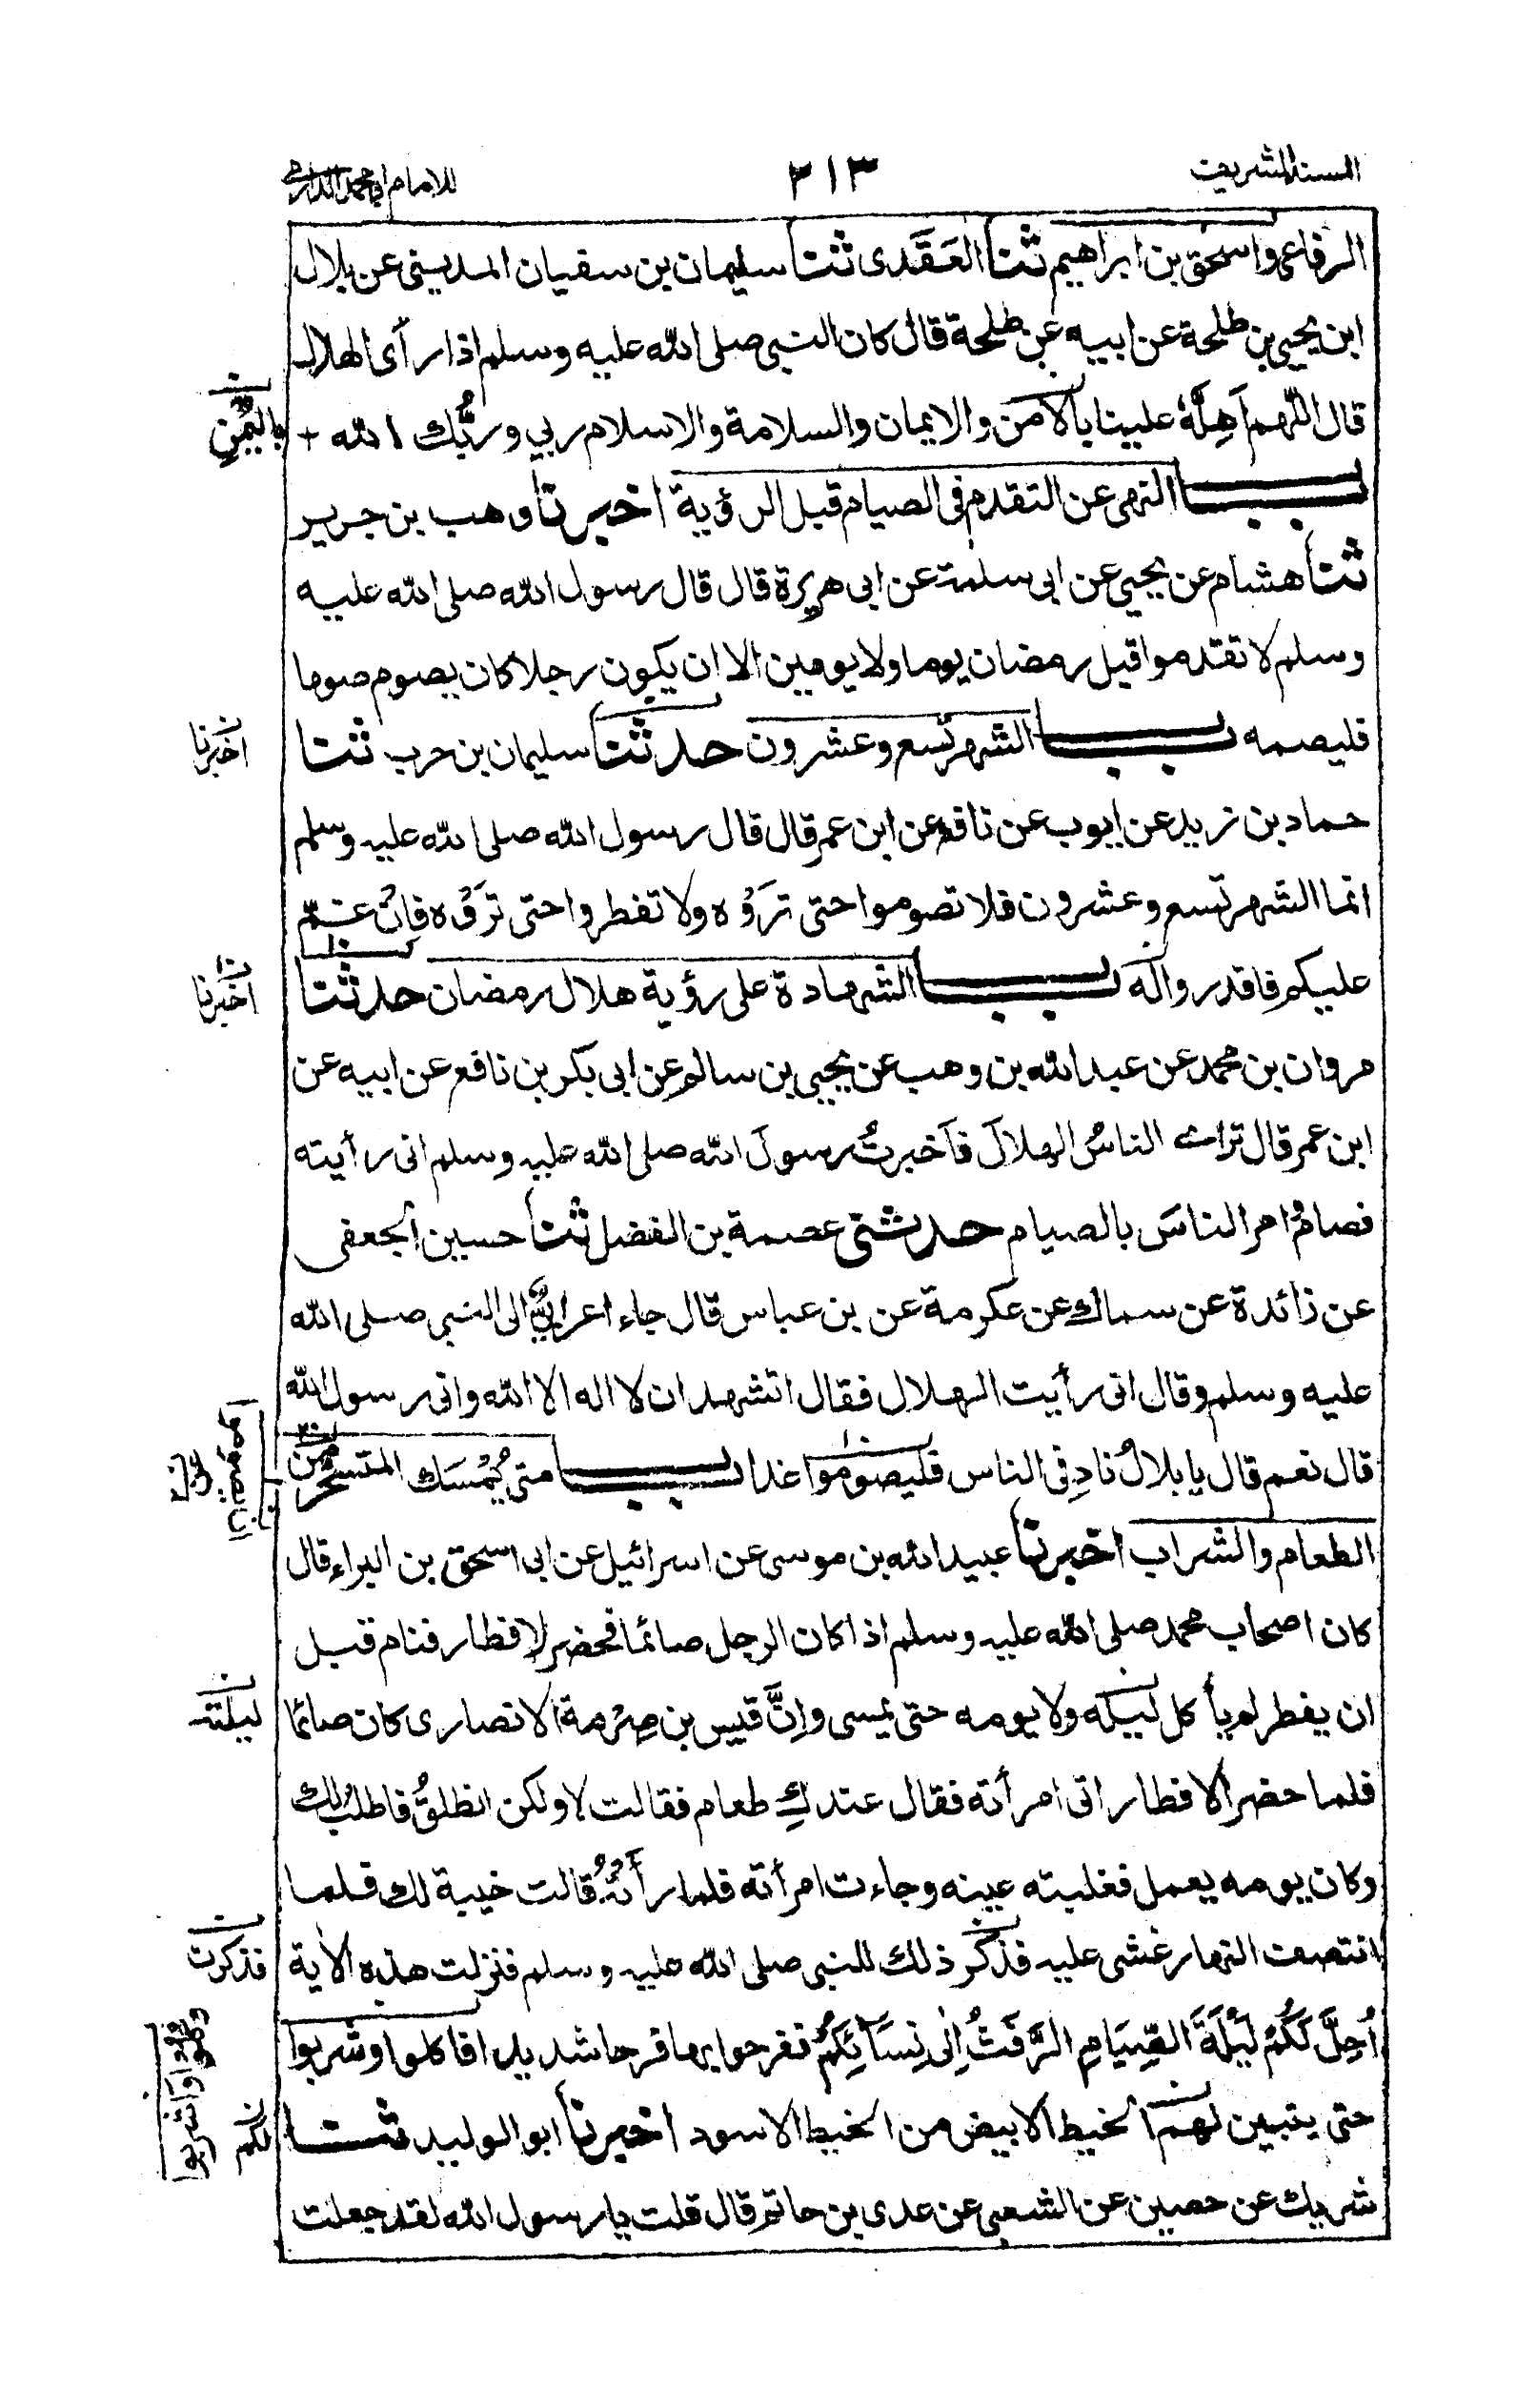 المسند الشريف
٣١٣
للامام ابي محمد الدارمي
الرفاعى واسحٰق بن ابراهيم ثنا العَقَدى ثنا سليمان بن سفيان المدينى عن بلال
ابن يحيى بن طلحة عن ابيه عن طلحة قال كان النبى صلى الله عليه وسلم اذا رأى الهلال
قال اللّٰهم اَهِلَّهٗ علينا بالامن والايمان والسلامة والاسلام ربي وربُّك الله +
باليُمْنِ
بــاب النهى عن التقدم فى الصيام قبل الرؤية اخبرنا وهب بن جرير
ثنا هشام عن يحيى عن ابى سلمة عن ابى هريرة قال قال رسول الله صلى الله عليه
وسلم لا تقدموا قبل رمضان يوما ولا يومين الا ان يكون رجلا كان يصوم صوما
فليصمه بــاب الشهر تسع وعشرون حدثنا سليمان بن حرب ثنا
اخبرنا
حماد بن زيد عن ايوب عن نافع عن ابن عمر قال قال رسول الله صلى الله عليه وسلم
انما الشهر تسع وعشرون فلا تصوموا حتى تَرَوْه ولا تفطروا حتى ترَوْه فاِنْ غُمَّ
عليكم فاقدروا له بــاب الشهادة على رؤية هلال رمضان حدثنا
اخبرنا
مروان بن محمد عن عبد الله بن وهب عن يحيى بن سالم عن ابى بكر بن نافع عن ابيه عن
ابن عمر قال تراءى الناسُ الهلالَ فاَخبرتُ رسولَ الله صلى الله عليه وسلم انى رأيته
فصام وامر الناسَ بالصيام حدثنى عصمة بن الفضل ثنا حسين الجعفى
عن زائدة عن سماك عن عكرمة عن بن عباس قال جاء اعرابيٌّ الى النبى صلى الله
عليه وسلم وقال انى رأيت الهلال فقال اتشهد ان لا اله الا الله وانى رسول الله
قال نعم قال يا بلالُ نادِ فى الناس فليصوموا غدا بــاب متى يُمْسَك المتسحّر من
ان يصوموا
الطعام والشراب اخبرنا عبيد الله بن موسى عن اسرائيل عن ابى اسحٰق بن البراء قال
كان اصحاب محمد صلى الله عليه وسلم اذا كان الرجل صائما فحضر الافطار فنام قبل
ان يفطر لم يأكل ليله ولا يومه حتى يمسى واِنَّ قيس بن صِرْمة الانصارى كان صائما
ليلته
فلما حضر الافطار اتى امرأته فقال عندكِ طعام فقالت لا ولكن انطلقُ فاطلب لك
وكان يومه يعمل فغلبته عينه وجاءت امرأته فلما رأَتْهُ قالت خيبة لك فلما
انتصف النهار غشى عليه فذكر ذلك للنبى صلى الله عليه وسلم فنزلت هذه الاٰية
فذكرت
اُحِلَّ لَكُمْ لَيْلَةَ الصِّيَامِ الرَّفَثُ اِلٰى نِسَائِكُمْ ففرحوا بها فرحا شديدا فاكلوا وشربوا
وكلوا واشربوا
حتى يتبين لهم الخيط الابيض من الخيط الاسود اخبرنا ابو الوليد ثنا
لكم
شريك عن حصين عن الشعبى عن عدى بن حاتم قال قلت يا رسول الله لقد جعلت